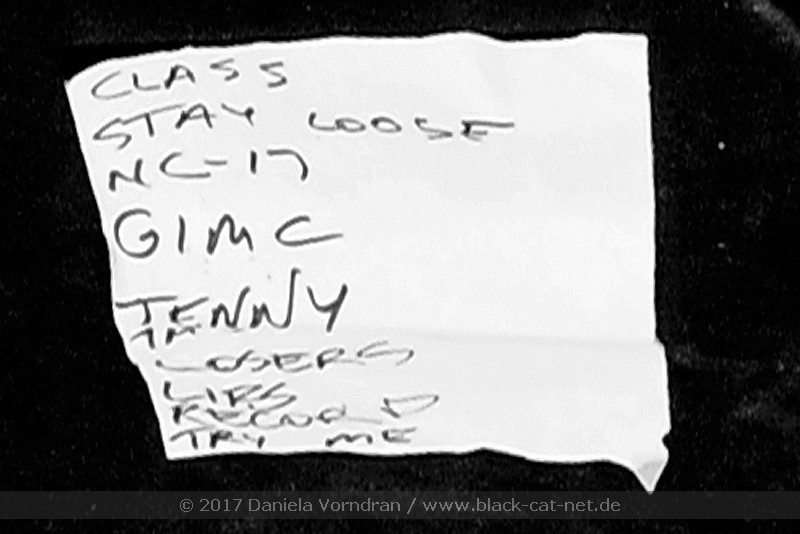 CLASS
STAY LOOSE
NC-17
GIMC
JENNY
LOSERS
LIPS
RECORD
TRY ME
© 2017 Daniela Vorndran / www.black-cat-net.de